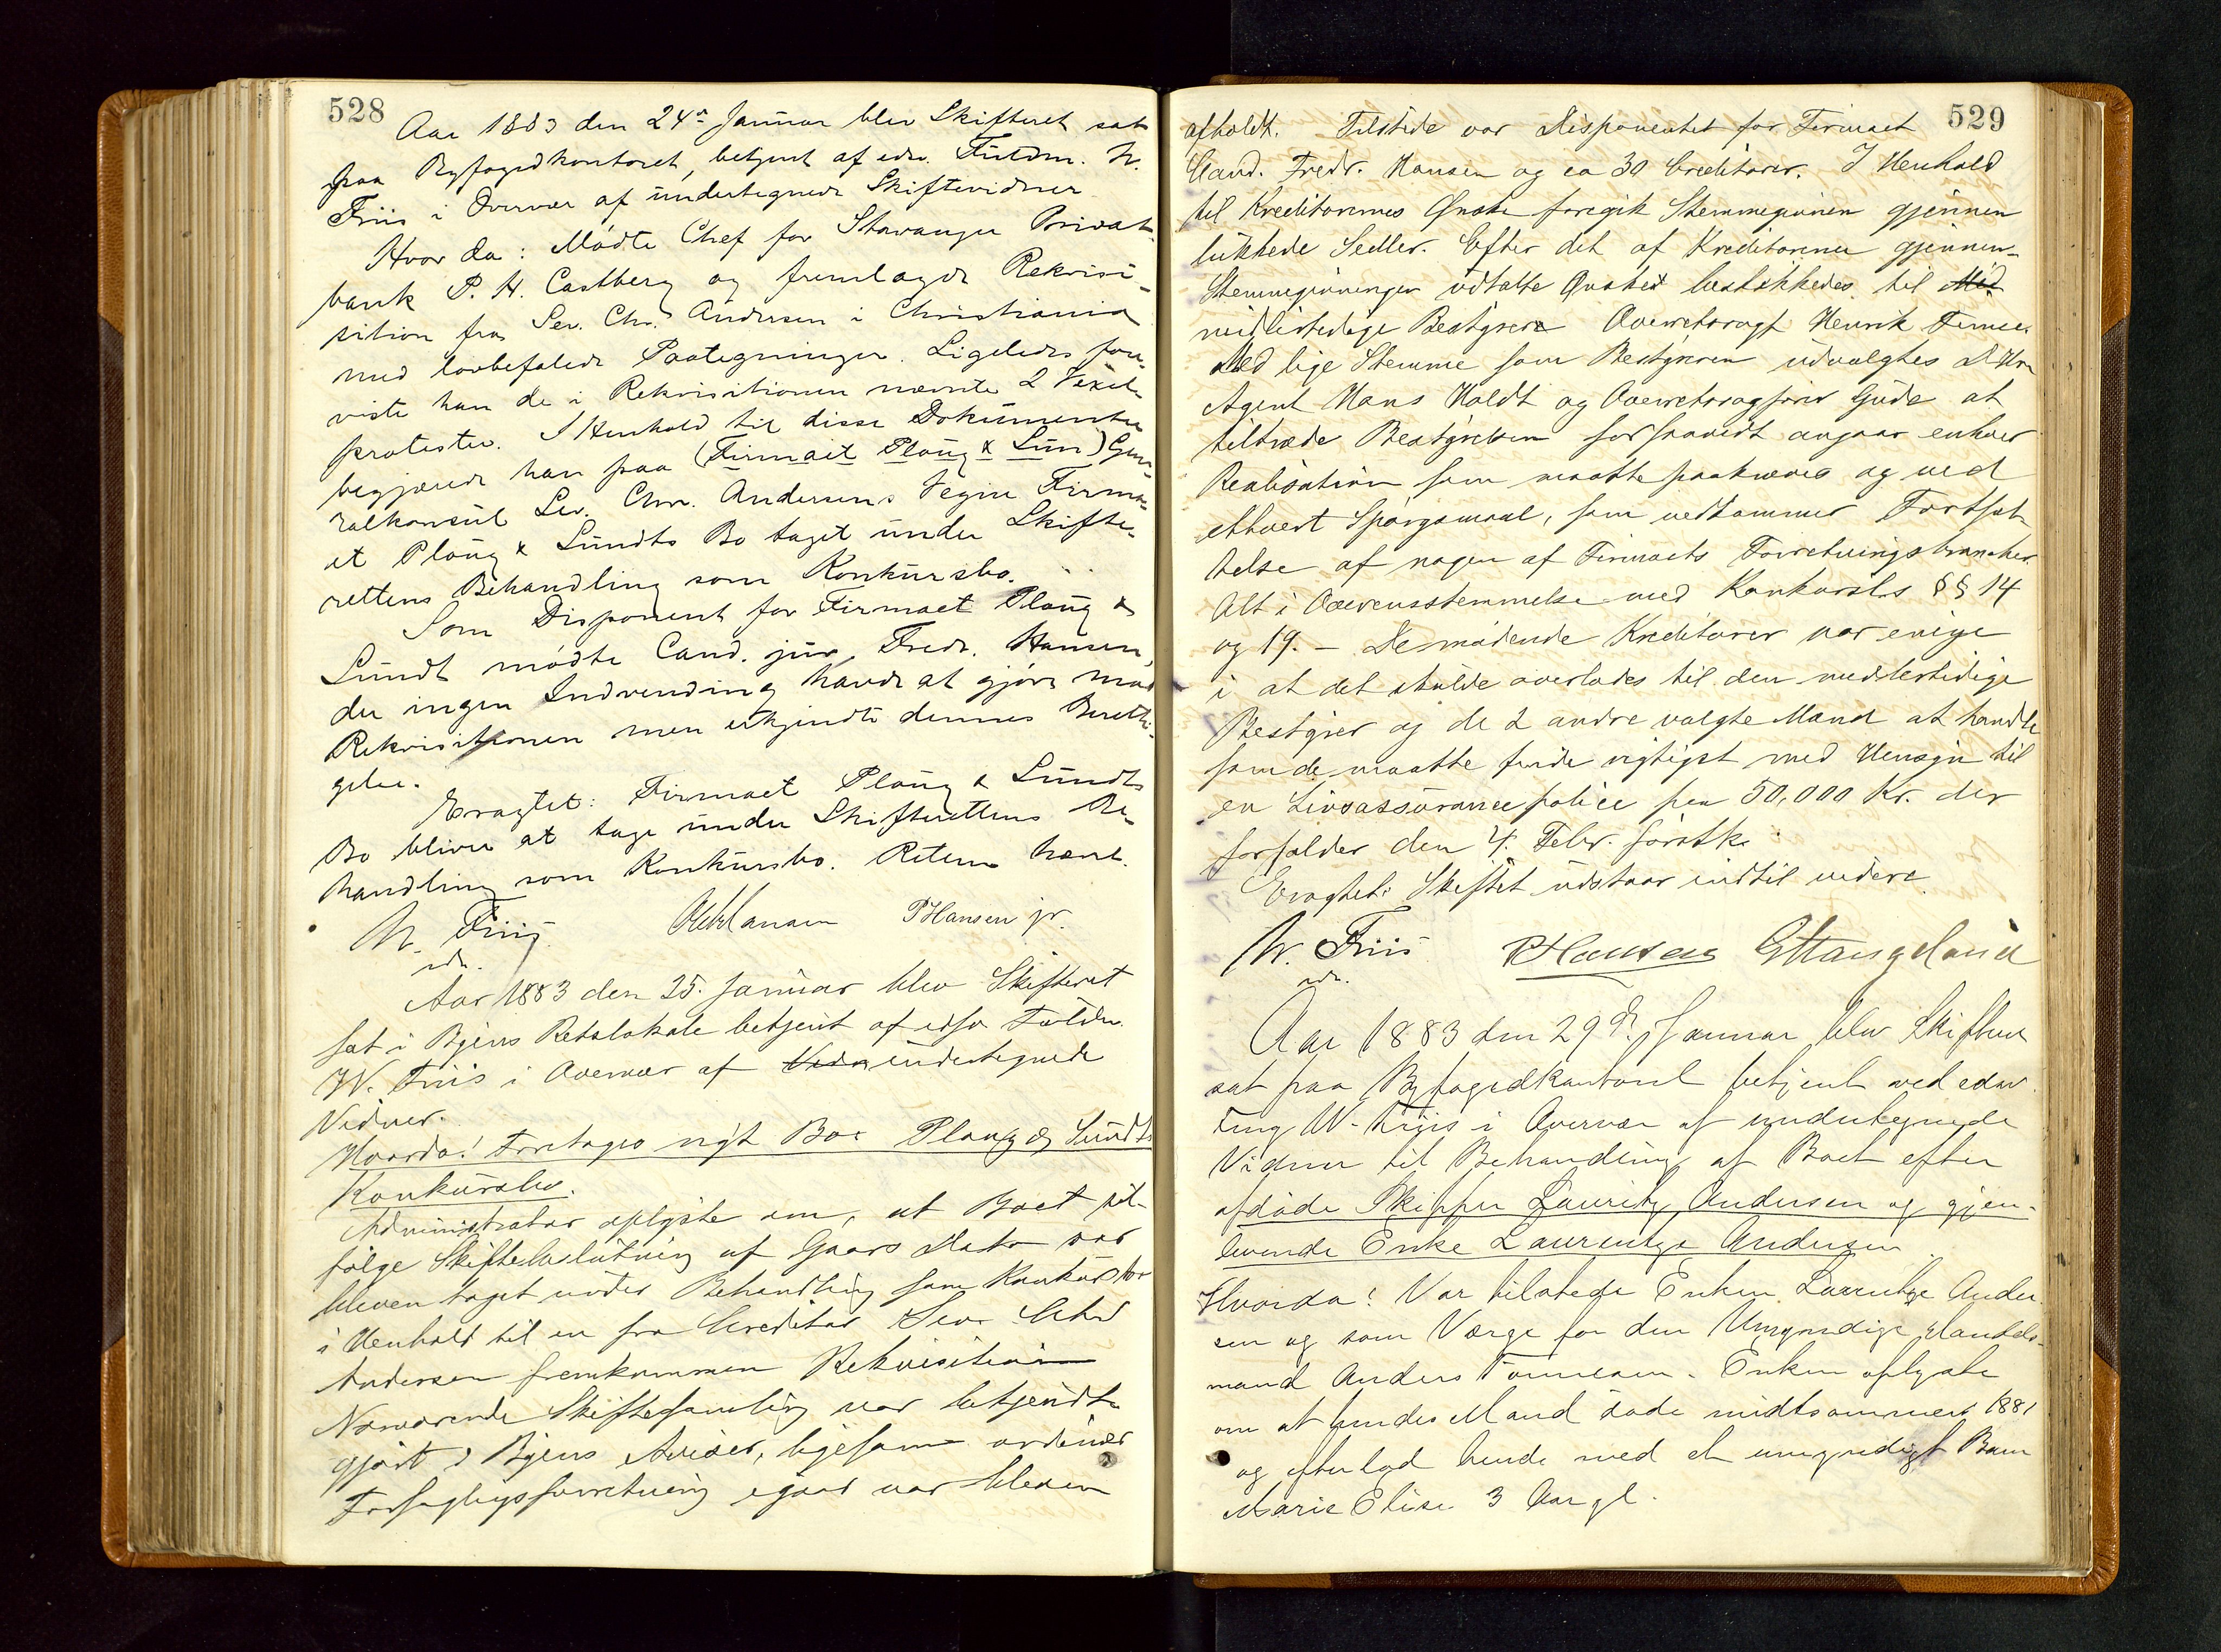 528
Aar 1883 den 24de Januar blev Skifteret sat
paa Byfogedkontoret, betjent af edsv. Fuldm. W.
Friis i Overvær af undertegnede Skiftevidner
Hvorda: Mødte Chef for Stavanger Privat-
bank P. H. Castberg og fremlagde Rekvisi-
sition fra Sev. Chr. Andersen i Christiania
med lovbefalede Paategninger. Ligeledes fore-
viste han de i Rekvisitionen nævnte 2 Vexel-
protester. I Henhold til disse Dokumenter
begjærede han paa (Firmaet Ploug & Lun) Gene-
ralkonsul Sev. Chr. Andersens Vegne Firma-
et Ploug & Sundts Bo taget under Skifte-
rettens Behandling som Konkursbo.
Som Disponent for Firmaet Ploug &
Sundt mødte Cand. jur. Fredr. Hansen,
der ingen Indvending havde at gjøre mod
Rekvisitionen men erkjendte dennes Beretti-
gelse.
Eragtet: Firmaet Ploug & Sundts
Bo bliver at tage under Skifterettens Be-
handling som Konkursbo. Retten hævet.
W. Friis PHansen jr.
edsv.
Aar 1883 den 25. Januar blev Skifteret
sat i Byens Retslokale betjent af edsv Fuldm.
W. Friis i Overvær af Vidn undertegnede
Vidner.
Hvorda! Foretages nyt Bo: Ploug og Sundts
Konkursbo.
Administrator oplyste om, at Boet til-
følge Skiftebeslutning af Gaars Dato var
bleven taget under Behandling som Konkursbo
i Henhold til en fra Creditor Sev. Chr
Andersen fremkommen Rekvisition
Nærværende Skiftesamling var bekjendt-
gjort i Byens Aviser, ligesom ordinær
Forseglingsforretning igaar var bleven
529
afholdt. Tilstede var Disponentet for Firmaet
Cand. Fredr. Hansen og ca 30 Creditorer. I Henhold
til Kreditorernes Ønske foregik Stemmegivnin gjennem
lukkede Sedler. Efter det af Kreditorerne gjennem
Stemmegivningen udtalte Ønsket beskikkedes til Mid
midlertidige Bestyrere Overretssagf Henrik Finne.
Med lige Stemme som Bestyreren udvalgtes DHrr
Agent Hans Holdt og Overretssagfører Gude at
tiltræde Bestyrelsen forsaavidt angaar enhver
Realisation som maatte paakræves og ved
ethvert Spørgsmaal, som vedkommer Fortsæt-
telse af nogen af Firmaets Forretningsbrancher.
Alt i Overensstemmelse med Konkursls §§ 14
og 19. – De mødende Kreditorer var enige
i at det skulde overlades til den midlertidige
Bestyrer og de 2 andre valgte Mænd at handle
som de maatte finde rigtigst med Hensyn til
en Livsassurancepolice paa 50,000 Kr. der
forfalder den 4. Febr. førstk.
Eragtet: Skiftet udstaar indtil videre.
W. Friis PHansen GHaugeland
edsv.
Aar 1883 den 29de Januar blev Skifteret
sat paa Byfogedkontoret betjent ved edsv.
Fmg W. Friis i Overvær af undertegnede
Vidner til Behandling af Boet efter
afdøde Skipper Lauritz Andersen og gjen-
levende Enke Laurentze Andersen
Hvorda! Var tilstede Enken Laurentze Ander-
sen og som Værge for den Umyndige Handels-
mand Anders Tønnesen. Enken oplyste
om at hendes Mand døde midtsommers 1881
og efterlod hende med et umyndigt Barn
Marie Elise 3 Aar gl.